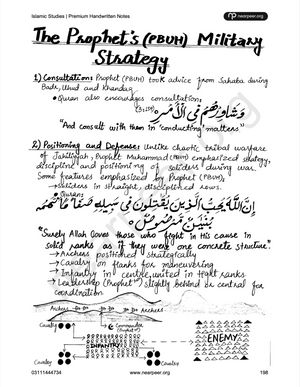 Islamic Studies | Premium Handwritten Notes
nearpeer.org
The Prophet's (PBUH) Military
Strategy
1) Consultation: Prophet (PBUH) took advice from Sahaba during
Badr, Uhud and Khandaq
• Quran also encourages consultation:
وَشَاوِرْهُمْ فِي الْأَمْرِ (3:159)
"And consult with them in 'conducting' matters"
2) Positioning and Defense: Unlike chaotic tribal warfare
of Jahiliyyah, Prophet Muhammad (PBUH) emphasized strategy,
discipline and positioning of soldiers during war.
Some features emphasized by Prophet (PBUH),
→ Soldiers in straight, disciplined rows.
• Quran:
إِنَّ اللَّهَ يُحِبُّ الَّذِينَ يُقَاتِلُونَ فِي سَبِيلِهِ صَفًّا كَأَنَّهُم
بُنْيَانٌ مَّرْصُوصٌ
"Surely Allah loves those who fight in His cause in
solid ranks as if they were one concrete structure".
→ Archers positioned strategically
→ Cavalry on flanks for maneuvering
→ Infantry in centre, united in tight ranks
→ Leadership (Prophet) slightly behind or central for
coordination
Archers Archers
Cavalry
Commander
(Prophet)
INFANTRY
ENEMY
Cavalry
03111444734
www.nearpeer.org
198